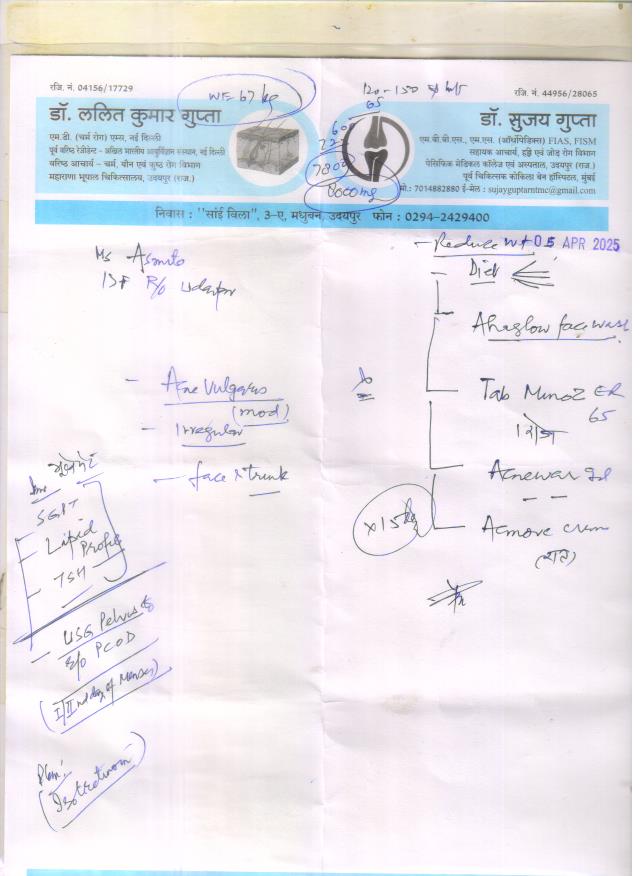 रजि. नं. 04156/17729
डॉ. ललित कुमार गुप्ता
एम.डी. (चर्म रोग) एम्स, नई दिल्ली
पूर्व वरिष्ठ रेजीडेन्ट - अखिल भारतीय आयुर्विज्ञान संस्थान, नई दिल्ली
वरिष्ठ आचार्य - चर्म, यौन एवं कुष्ठ रोग विभाग
महाराणा भूपाल चिकित्सालय, उदयपुर (राज.)
Wt= 67 kg
120-150
65
60
7800
8000mg
रजि. नं. 44956/28065
डॉ. सुजय गुप्ता
एम.बी.बी.एस., एम.एस. (ऑर्थोपेडिक्स) FIAS, FISM
सहायक आचार्य, हड्डी एवं जोड़ रोग विभाग
पेसिफिक मेडिकल कॉलेज एवं अस्पताल, उदयपुर (राज.)
पूर्व चिकित्सक कोकिला बेन हॉस्पिटल, मुंबई
मो.: 7014882880 ई-मेल : sujayguptarntmc@gmail.com
निवास : ''सांई विला'', 3-ए, मधुबन, उदयपुर फोन : 0294-2429400
Ms Asmita
R/o Udaipur
- Acne Vulgaris
(mod)
- Irregular
- face & trunk
SGPT
Lipid
Profile
TSH
- USG Pelvis
PCOD
(I/IInd day of Menses)
Plan:
(Isotretinoin)
- Reduce wt 05 APR 2025
- Diet
Ahaglow face wash
Tab Minoz ER
65
1 रोज
Acnewar gel
Acmove cream
(रात)